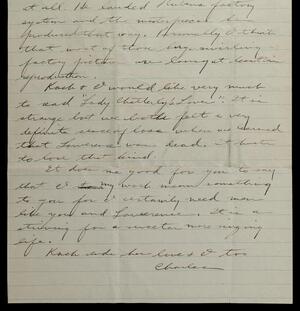 at all. He landed Rubens factory
system and the masterpieces he
produced that way. Personally I think
that most of those
factory pictures are
Kach & I would like very much
to read "Lady Chatterly's Lover". It is
strange but we both felt a very
definite sense of loss when we learned
that Lawrence was dead. It hurts
to lose that kind.
It does me good for you to say
that I my work means something
to you for I certainly need men
like you and Lawerence. It is a
striving for a sweeter more singing
life.
Kach sends her love & I too
Charles